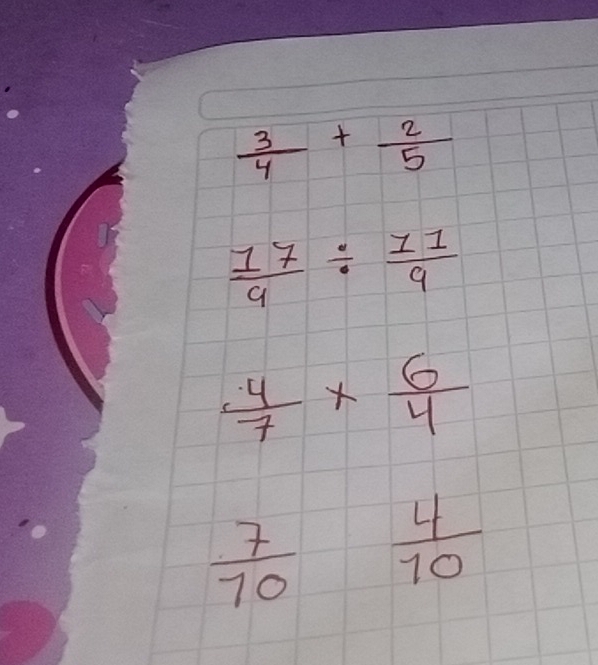 3/4 + 2/5
17/9 ÷ 11/9
4/7 × 6/4
7/10 4/10